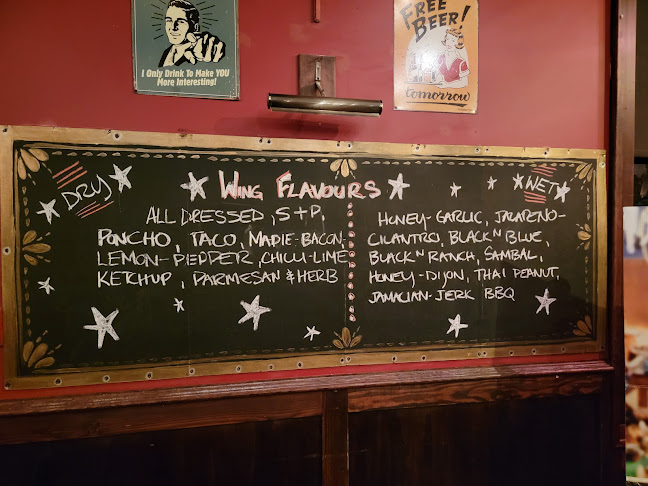 I Only Drink To Make YOU
More Interesting!
FREE
BEER!
tomorrow
DRY
WING FLAVOURS
WET
ALL DRESSED, S+P,
PONCHO, TACO, MAPLE-BACON,
LEMON-PEPPER, CHILLI-LIME
KETCHUP, PARMESAN & HERB
HONEY-GARLIC, JALAPENO-
CILANTRO, BLACK N BLUE,
BLACK N RANCH, SAMBAL,
HONEY-DIJON, THAI PEANUT,
JAMACIAN-JERK BBQ